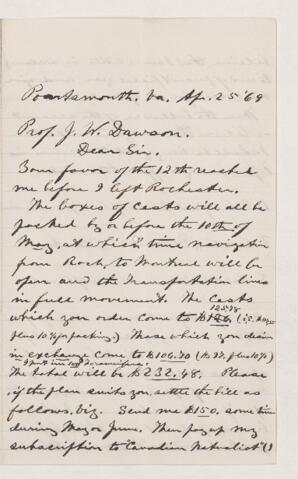 Poartsmouth. Va. Apr. 25 '69
Prof. J. W. Dawson.
Dear Sir.
Your favor of the 12th reached
me before I left Rochester.
The boxes of Casts will all be
packed by or before the 10th of
May, at which time navigation
from Roch. to Montreal will be
open and the Transportation lines
in full movement. The Casts
125.78
which you order come to $
plus 10% for packing). Those which you desire
in exchange come to $106.70 (
The total will be $232.48. Please,
if the plan suits you, settle the bill as
follows, viz. Send me $150. some time
during May or June. Then pay up my
subscription to Canadian Naturalist (